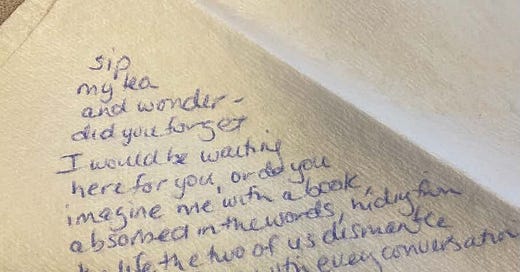 sip
my tea
and wonder -
did you forget
I would be waiting
here for you, or do you
imagine me with a book,
absorbed in the words, hiding from
life, the two of us dismantle
with every conversation